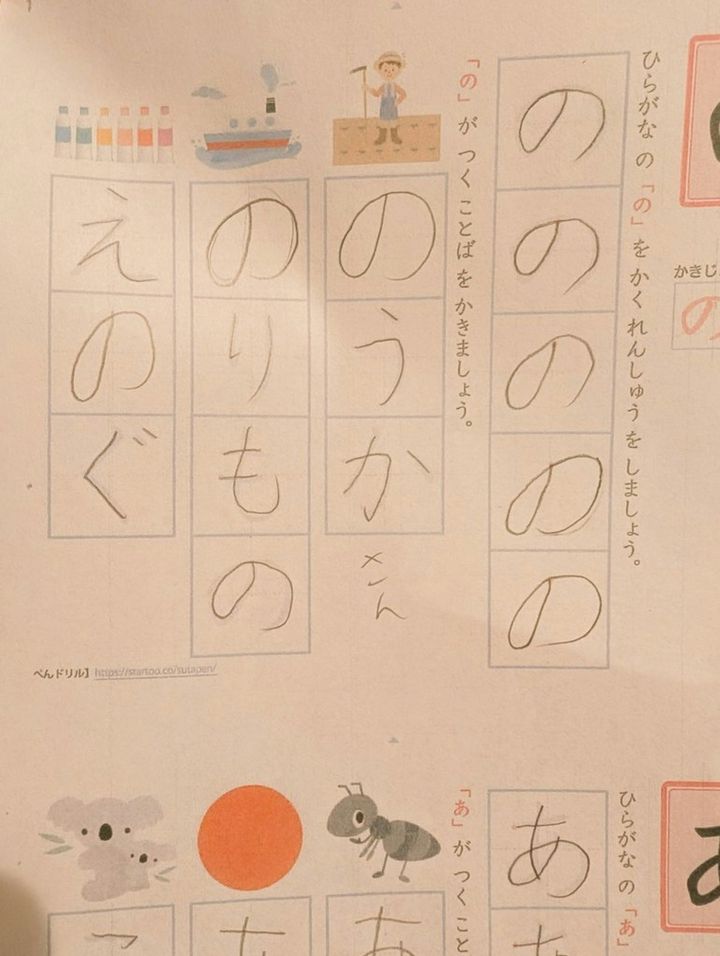 かきじ
の
ひらがな の 「の」 を かく れんしゅう を しましょう。
の
の
の
の
の
「の」 が つく ことば を かきましょう。
のうか
さん
のりもの
えのぐ
ぺんドリル】 https://startoo.co/sutapen/
ひらがな の 「あ」
あ
「あ」 が つく こと